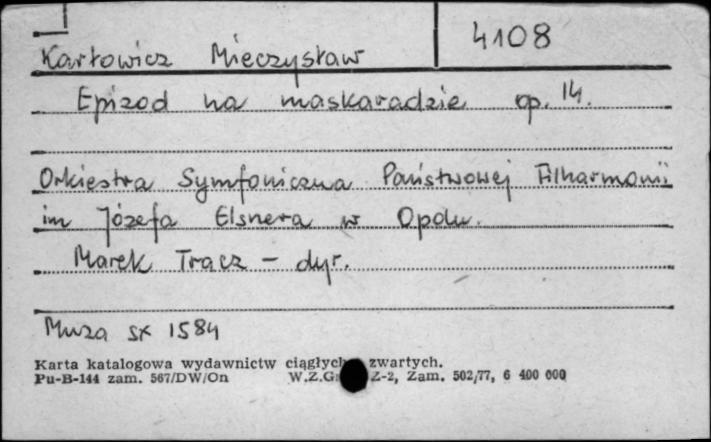 Karłowicz Mieczysław 4108
Epizod na maskaradzie op. 14.
Orkiestra Symfoniczna Państwowej Filharmonii
im Józefa Elsnera w Opolu.
Marek Tracz - dyr.
Muza sx 1584
Karta katalogowa wydawnictw ciągłych zwartych.
Pu-B-144 zam. 567/DW/On W.Z.G. Z-2, Zam. 502/77, 6 400 000